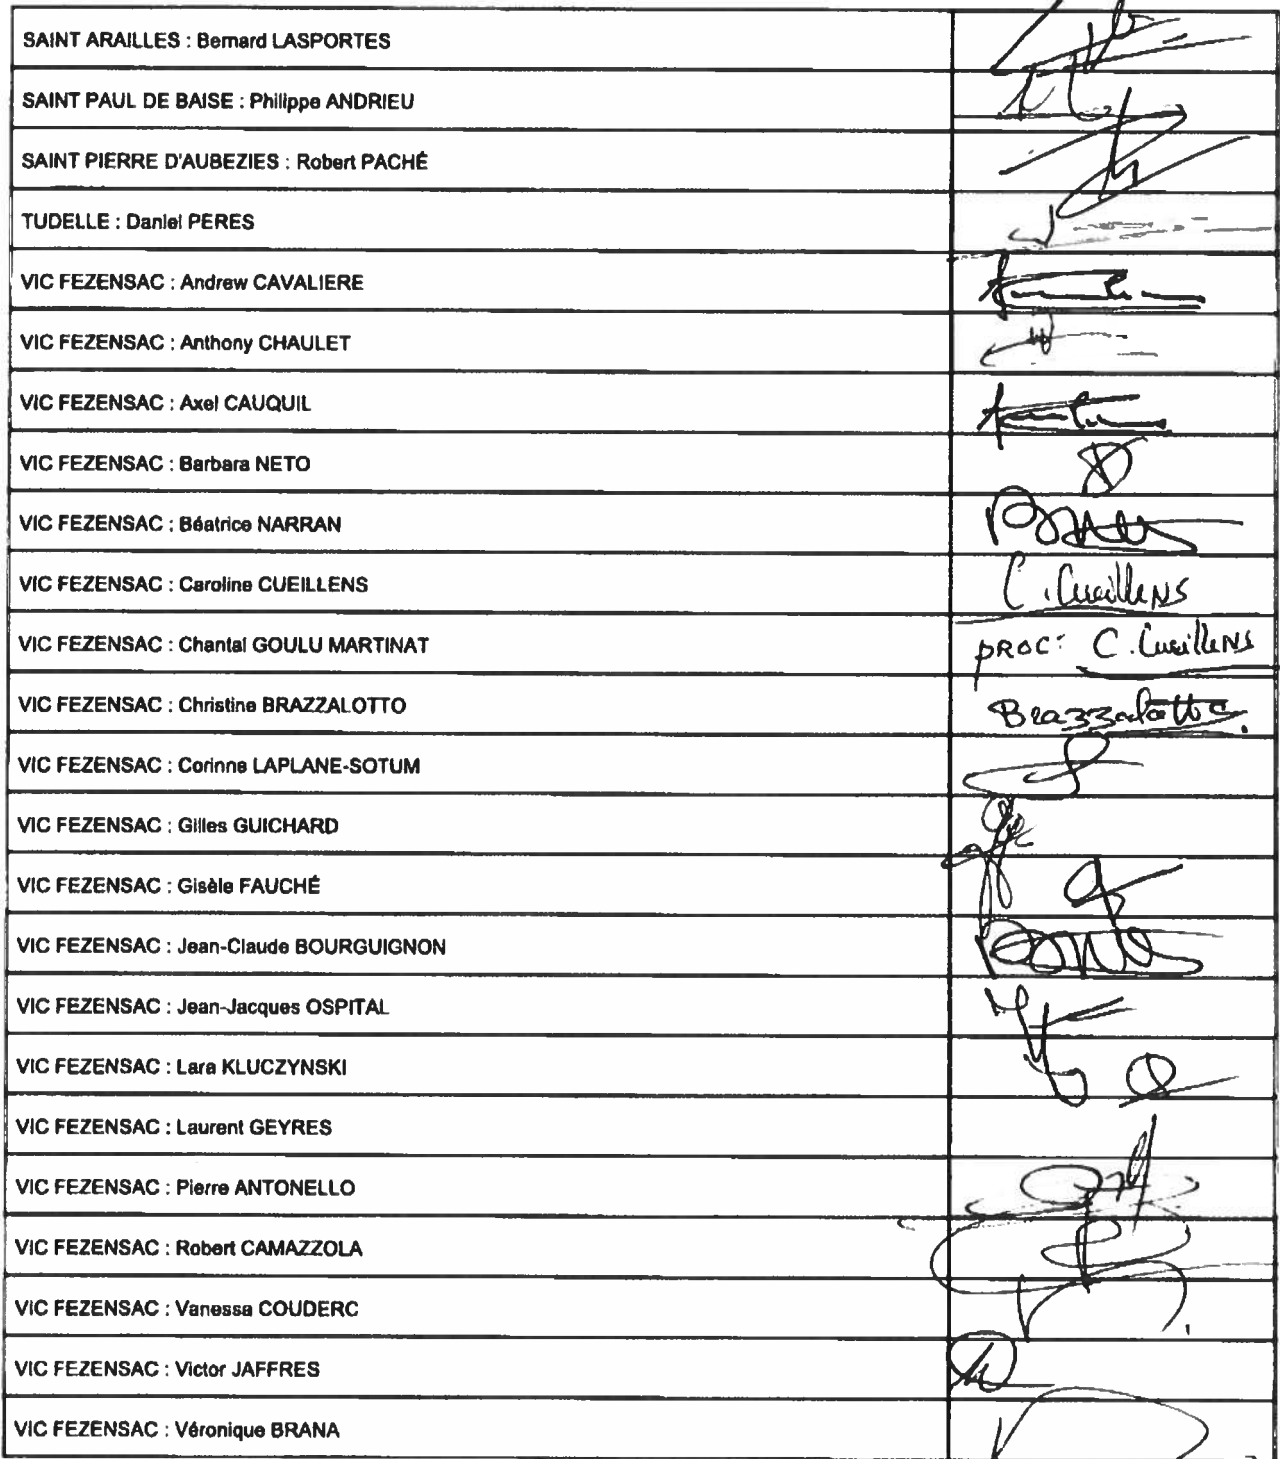 SAINT ARAILLES : Bernard LASPORTES
SAINT PAUL DE BAISE : Philippe ANDRIEU
SAINT PIERRE D'AUBEZIES : Robert PACHÉ
TUDELLE : Daniel PERES
VIC FEZENSAC : Andrew CAVALIERE
VIC FEZENSAC : Anthony CHAULET
VIC FEZENSAC : Axel CAUQUIL
VIC FEZENSAC : Barbara NETO
VIC FEZENSAC : Béatrice NARRAN
VIC FEZENSAC : Caroline CUEILLENS C. Cueillens
VIC FEZENSAC : Chantal GOULU MARTINAT PROC: C. Cueillens
VIC FEZENSAC : Christine BRAZZALOTTO Brazzalotto
VIC FEZENSAC : Corinne LAPLANE-SOTUM
VIC FEZENSAC : Gilles GUICHARD
VIC FEZENSAC : Gisèle FAUCHÉ
VIC FEZENSAC : Jean-Claude BOURGUIGNON
VIC FEZENSAC : Jean-Jacques OSPITAL
VIC FEZENSAC : Lara KLUCZYNSKI
VIC FEZENSAC : Laurent GEYRES
VIC FEZENSAC : Pierre ANTONELLO
VIC FEZENSAC : Robert CAMAZZOLA
VIC FEZENSAC : Vanessa COUDERC
VIC FEZENSAC : Victor JAFFRES
VIC FEZENSAC : Véronique BRANA